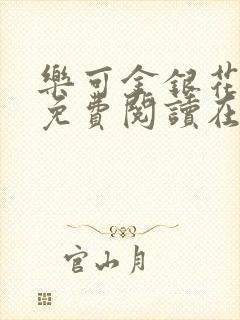 樂可金銀花
免費閱讀在
官山月